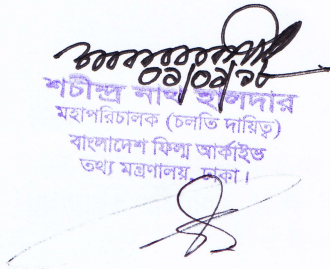 ০১/০১/১৮
শচীন্দ্র নাথ হালদার
মহাপরিচালক (চলতি দায়িত্ব)
বাংলাদেশ ফিল্ম আর্কাইভ
তথ্য মন্ত্রণালয়, ঢাকা।